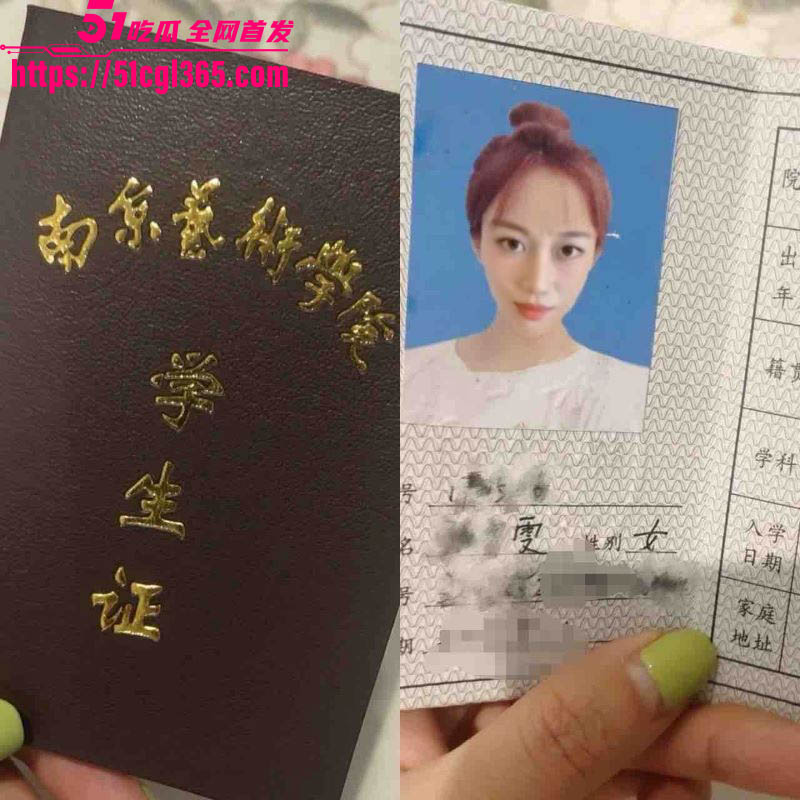 51吃瓜 全网首发
https://51cgl365.com
南京艺术学院
学
生
证
号
名 雯 性别 女
号
期
院
出
年
籍贯
学科
入学
日期
家庭
地址